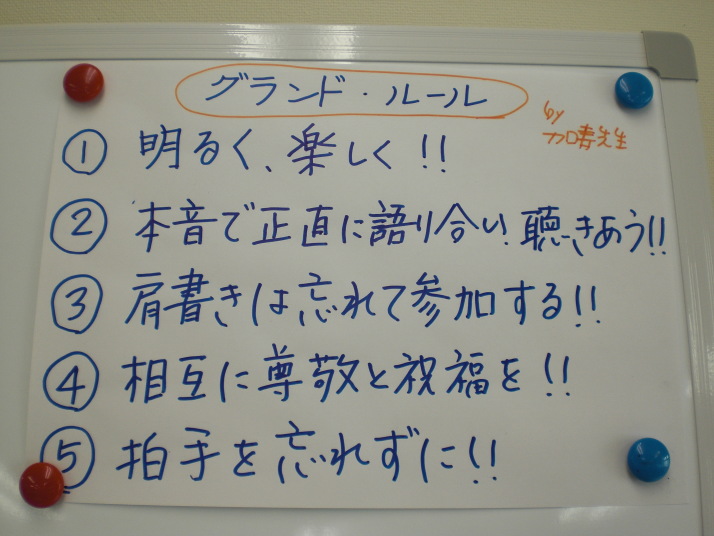 グランド・ルール
by
加寿先生
① 明るく、楽しく!!
② 本音で正直に語り合い 聴きあう!!
③ 肩書きは忘れて参加する!!
④ 相互に尊敬と祝福を!!
⑤ 拍手を忘れずに!!